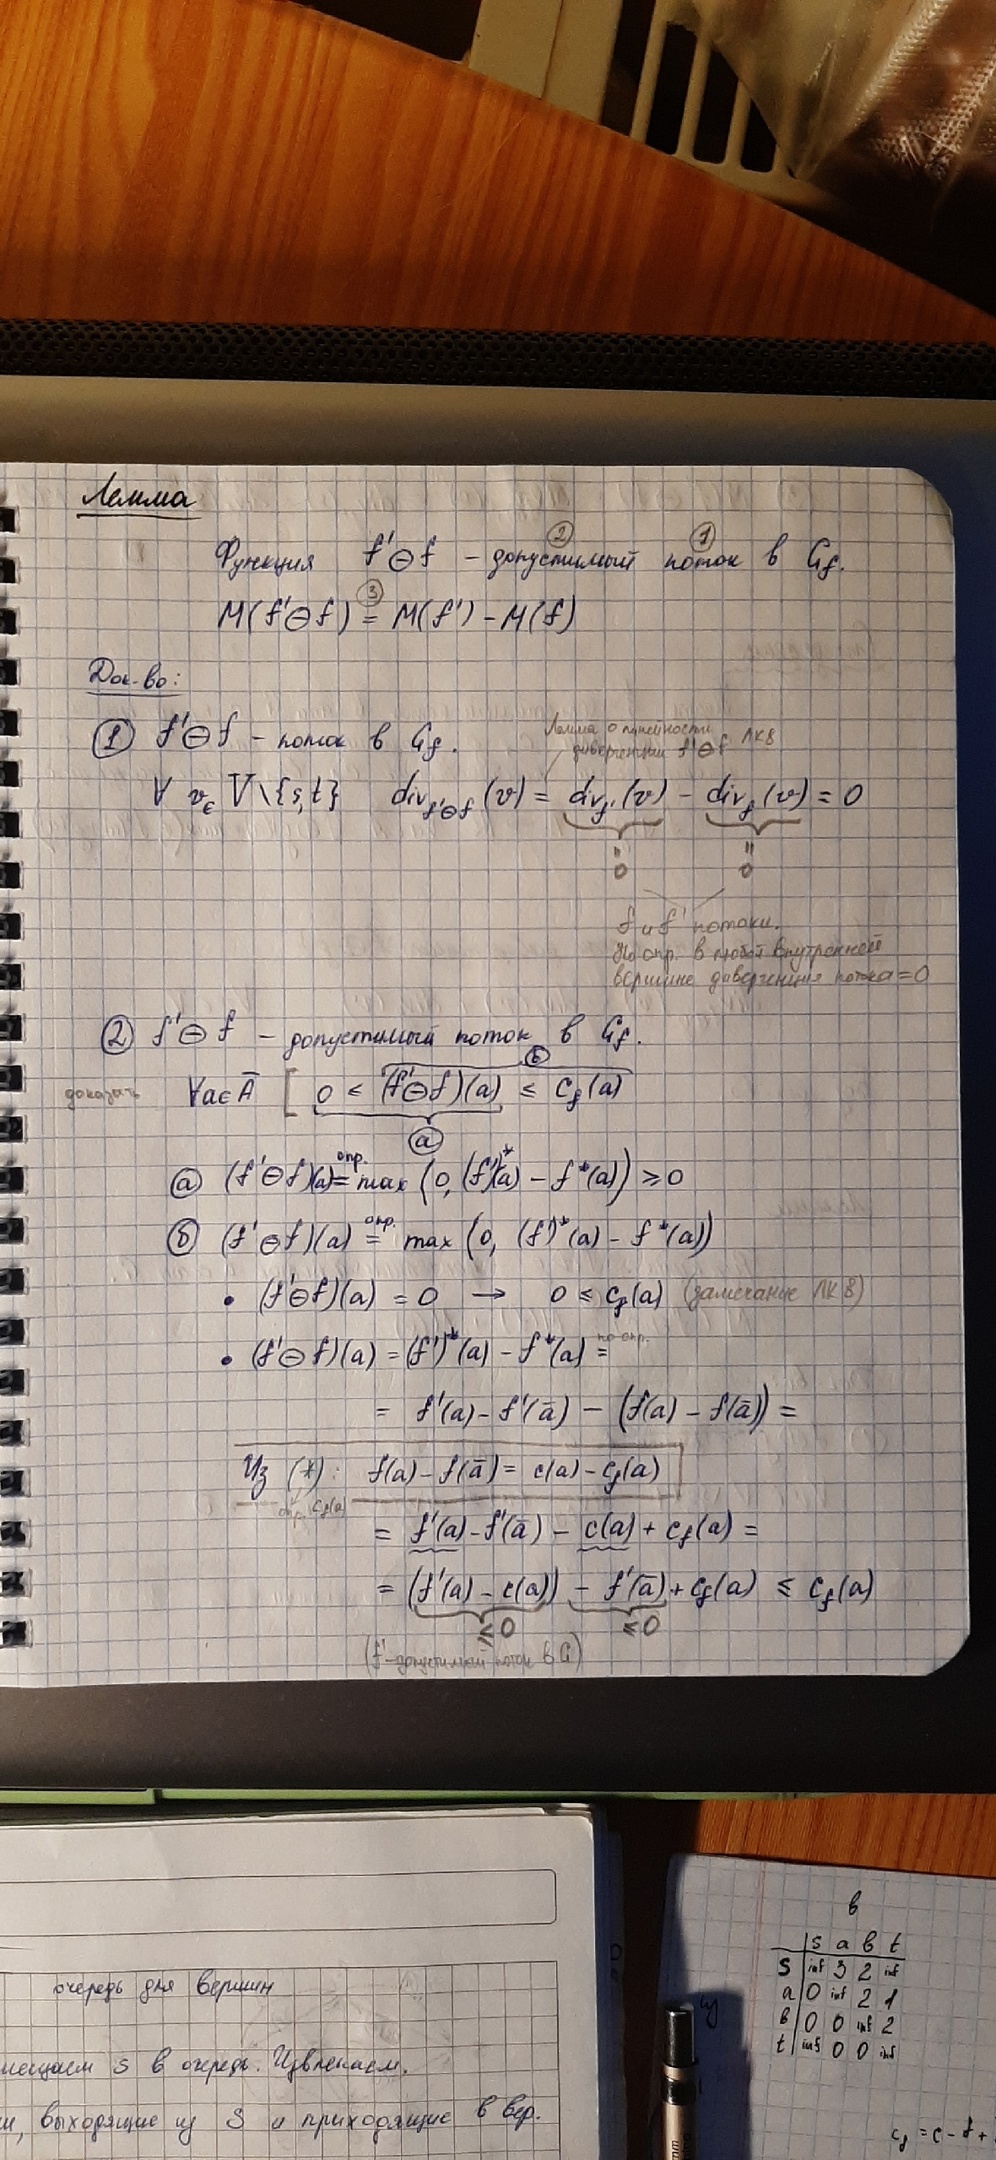 Лемма
Функция f'⊖f – допустимый ② поток ① в G_f.
M(f'⊖f) =③ M(f') - M(f)
Док-во:
① f'⊖f – поток в G_f.
Лемма о линейности
дивергенции f'⊖f ЛК8
∀ v ∈ V\{s,t} div_{f'⊖f}(v) = div_{f'}(v) - div_f(v) = 0
" "
0 0
f и f' потоки.
По опр. в любой внутренней
вершине дивергенция потока = 0
② f'⊖f – допустимый поток в G_f.
доказать ∀a∈Ā [ 0 ≤ (f'⊖f)(a) ≤ c_f(a)
ⓑ
ⓐ
ⓐ (f'⊖f)(a) =опр. max(0, (f')*(a) - f*(a)) ≥ 0
ⓑ (f'⊖f)(a) =опр. max(0, (f')*(a) - f*(a))
• (f'⊖f)(a) = 0 → 0 ≤ c_f(a) (замечание ЛК 8)
• (f'⊖f)(a) = (f')*(a) - f*(a) = по опр.
= f'(a) - f'(ā) - (f(a) - f(ā)) =
Из (*): f(a) - f(ā) = c(a) - c_f(a)
опр. c_f(a)
= f'(a) - f'(ā) - c(a) + c_f(a) =
= (f'(a) - c(a)) - f'(ā) + c_f(a) ≤ c_f(a)
≤0 ≤0
(f'-допустимый поток в G)
очередь для вершин
мещаем s в очередь. Извлекаем.
и, выходящие из S и приходящие в вер.
в
s a b t
s inf 3 2 inf
a 0 inf 2 1
b 0 0 inf 2
t inf 0 0 inf
c_f = c - f +